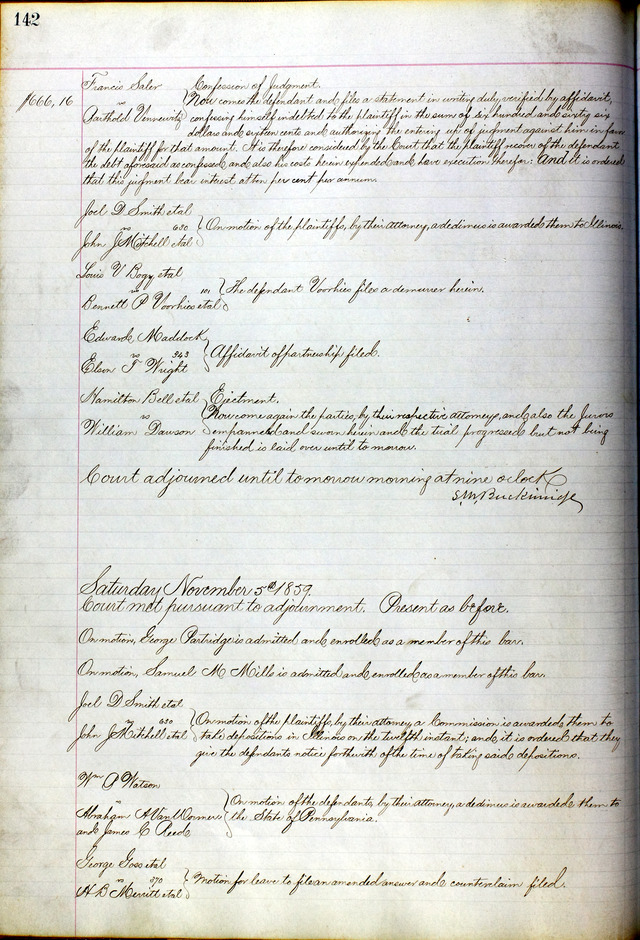 142
Francis Saler } Confession of Judgment.
$666,16 vs Now comes the defendant and files a statement in writing duly verified by affidavit,
Barthold confessing himself indebted to the plaintiff in the sum of six hundred and sixty six
dollars and sixteen cents and authorizing the entering up of judgment against him in favor
of the plaintiff for that amount. It is therefore considered by the Court that the plaintiff recover of the defendant
the debt aforesaid as confessed, and also his costs herein expended and have execution therefor: And it is ordered
that this judgment bear interest at ten per cent per annum.
Joel D Smith et al
vs 630 } On motion of the plaintiffs, by their attorney, a dedimus is awarded them to Illinois.
John J Mitchell et al
Louis V Bogy et al
vs 101 } The defendant Voorhies files a demurrer herein.
Bennett P Voorhies et al
Edward Maddock
vs 343 } Affidavit of partnership filed.
Eben T Wright
Hamilton Bell et al } Ejectment.
vs Now come again the parties, by their respective attorneys, and also the Jurors
William Dawson empanneled and sworn herein and the trial progressed but not being
finished is laid over until to morrow.
Court adjourned until tomorrow morning at nine oclock
Saturday November 5th 1859.
Court met pursuant to adjournment. Present as before.
On motion, George Partridge is admitted and enrolled as a member of this bar.
On motion, Samuel M Mills is admitted and enrolled as a member of this bar.
Joel D Smith et al
vs 630 } On motion of the plaintiffs, by their attorney, a Commission is awarded them to
John J Mitchell et al take depositions in Illinois on the twelfth instant; and, it is ordered that they
give the defendants notice forthwith of the time of taking said depositions.
Wm P Watson
vs } On motion of the defendants, by their attorney, a dedimus is awarded them to
Abraham A Van Wormer the State of Pennsylvania.
and James C Reede
George Goss et al
vs 370 } Motion for leave to file an amended answer and counterclaim filed.
A B Merritt et al